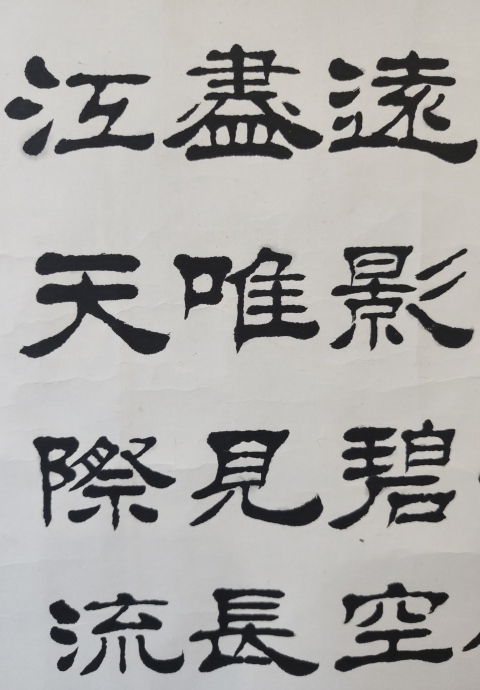 遠影碧空
盡唯見長
江天際流